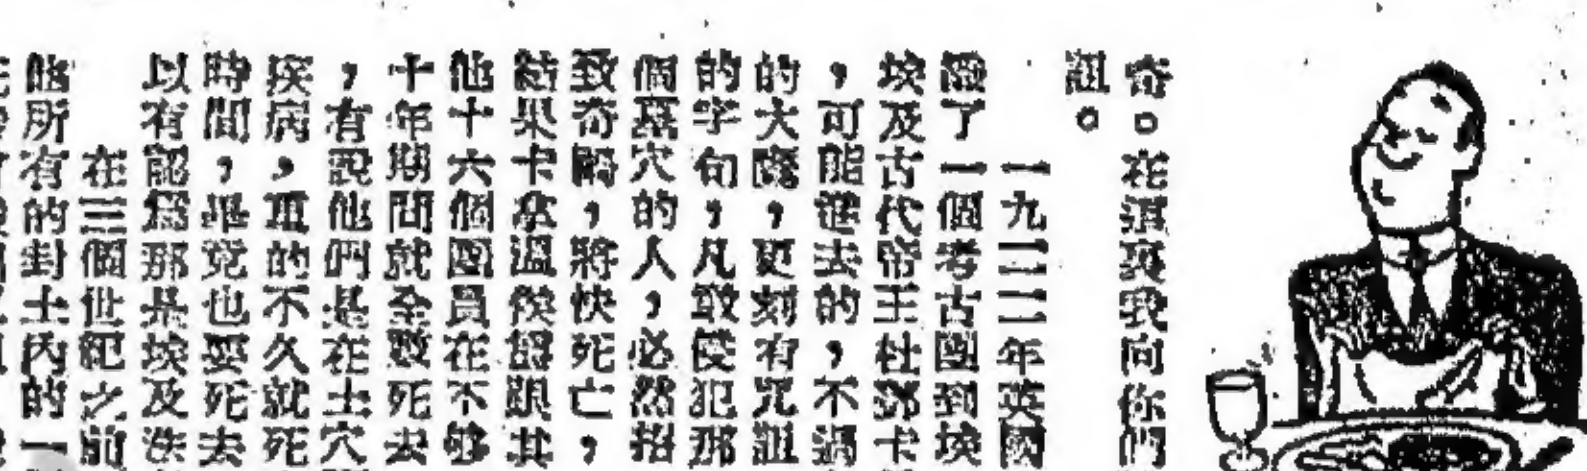 奇。在這裏我向你們
詛。
一九二二年英國
派了一個考古團到埃
埃及古代帝王杜鄧卡
，可能進去的，不過
的大廳，更刻有咒詛
的字句，凡敢侵犯那
個墓穴的人，必然招
致奇禍，將快死亡，
結果卡拿溫侯爵跟其
他十六個團員在不够
十年期間就全數死去
，有說他們是在土穴
疾病，重的不久就死
時間，畢竟也要死去
以有認爲那是埃及法
在三個世紀之前
他所有的封士內的一